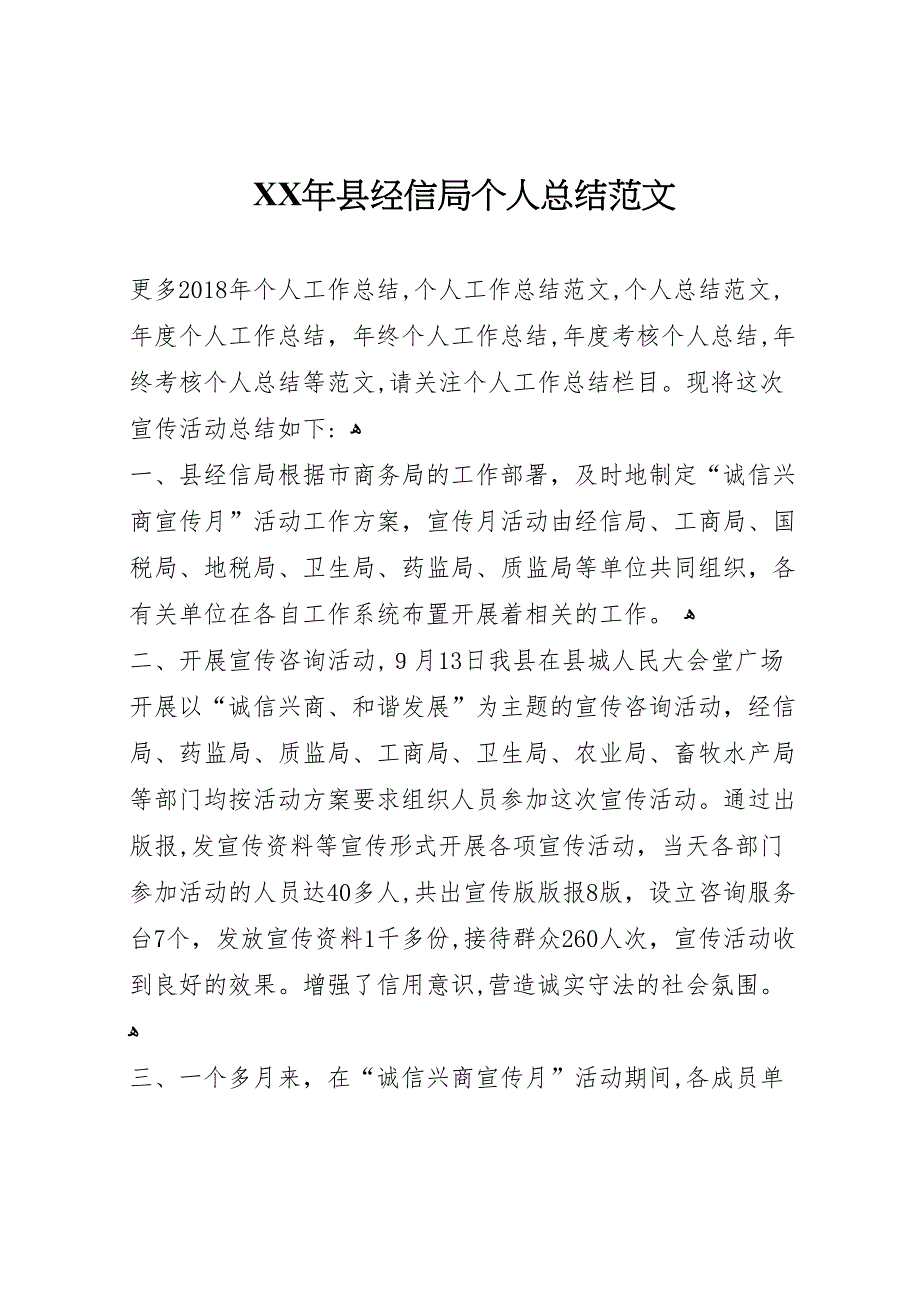 XX年县经信局个人总结范文
更多2018年个人工作总结,个人工作总结范文,个人总结范文,
年度个人工作总结，年终个人工作总结,年度考核个人总结,年
终考核个人总结等范文,请关注个人工作总结栏目。现将这次
宣传活动总结如下: ﻫ
一、县经信局根据市商务局的工作部署，及时地制定“诚信兴
商宣传月”活动工作方案，宣传月活动由经信局、工商局、国
税局、地税局、卫生局、药监局、质监局等单位共同组织，各
有关单位在各自工作系统布置开展着相关的工作。 ﻫ
二、开展宣传咨询活动,9月13日我县在县城人民大会堂广场
开展以“诚信兴商、和谐发展”为主题的宣传咨询活动，经信
局、药监局、质监局、工商局、卫生局、农业局、畜牧水产局
等部门均按活动方案要求组织人员参加这次宣传活动。通过出
版报,发宣传资料等宣传形式开展各项宣传活动，当天各部门
参加活动的人员达40多人,共出宣传版版报8版，设立咨询服务
台7个，发放宣传资料1千多份,接待群众260人次，宣传活动收
到良好的效果。增强了信用意识,营造诚实守法的社会氛围。
ﻫ
三、一个多月来，在“诚信兴商宣传月”活动期间,各成员单